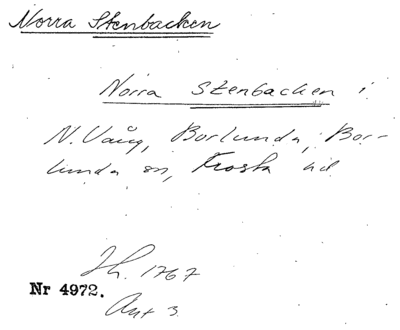 Norra Stenbacken
Norra Stenbacken i
N. Vång, Borlunda, Bor-
lunda sn, Frosta hd
Jh. 1767
Nr 4972.
Akt 3.